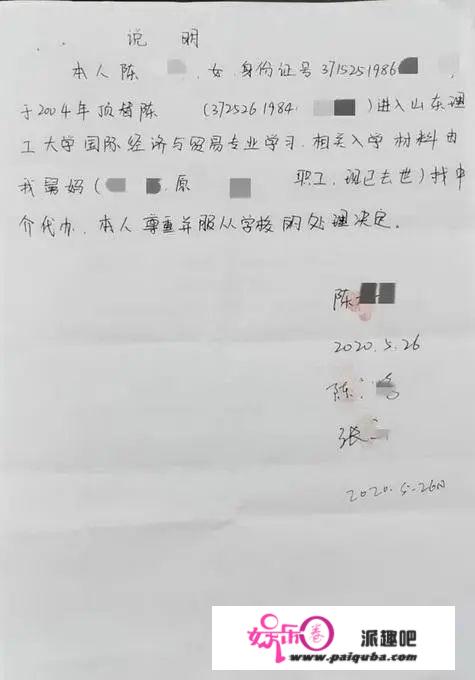 说 明
本人陈 , 女, 身份证号 3715251986 ,
于2004年顶替陈 (372526 1984. )进入山东理
工大学国际经济与贸易专业学习.相关入学材料由
我舅妈( .原 职工,现已去世)找中
介代办. 本人尊重并服从学校的处理决定。
陈
2020.5.26
陈
张
2020.5.26日
娱乐圈 派趣吧
www.paiquba.com